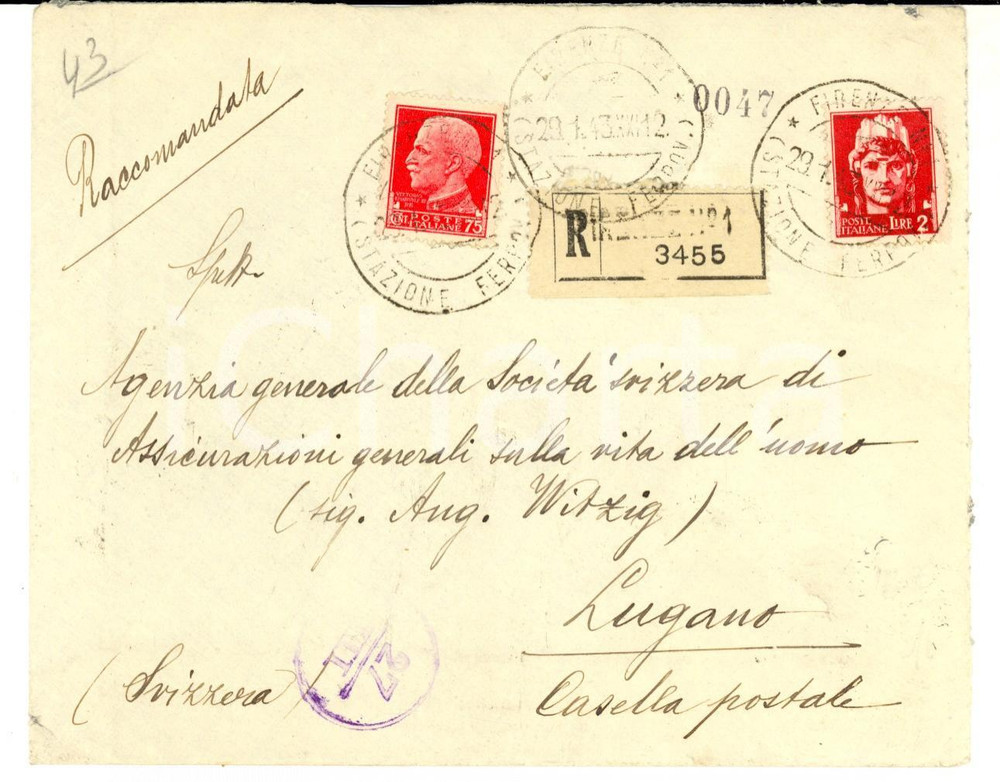 43
Raccomandata
0047
FIRENZE
29.1.43.XXI 12
(STAZIONE FERROV.)
POSTE
ITALIANE
CENT. 75
(STAZIONE FERROV.)
FIRENZE
29.1.
(STAZIONE FERROV.)
POSTE
ITALIANE LIRE 2
R FIRENZE Nº1
3455
Spett.
Agenzia generale della Società svizzera di
Assicurazioni generali sulla vita dell'uomo
(sig. Aug. Witzig)
Lugano
(Svizzera)
Casella postale
27
iCharta